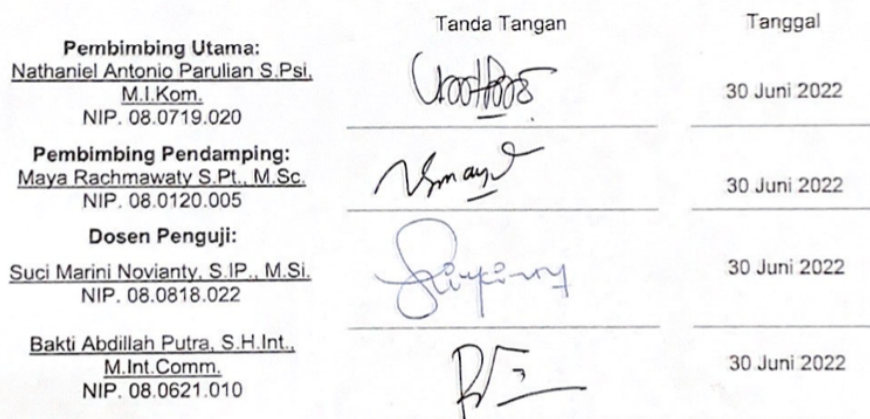 Tanda Tangan Tanggal
Pembimbing Utama:
Nathaniel Antonio Parulian S.Psi,
M.I.Kom.
NIP. 08.0719.020
30 Juni 2022
Pembimbing Pendamping:
Maya Rachmawaty S.Pt., M.Sc.
NIP. 08.0120.005
30 Juni 2022
Dosen Penguji:
Suci Marini Novianty, S.IP., M.Si.
NIP. 08.0818.022
30 Juni 2022
Bakti Abdillah Putra, S.H.Int.,
M.Int.Comm.
NIP. 08.0621.010
30 Juni 2022